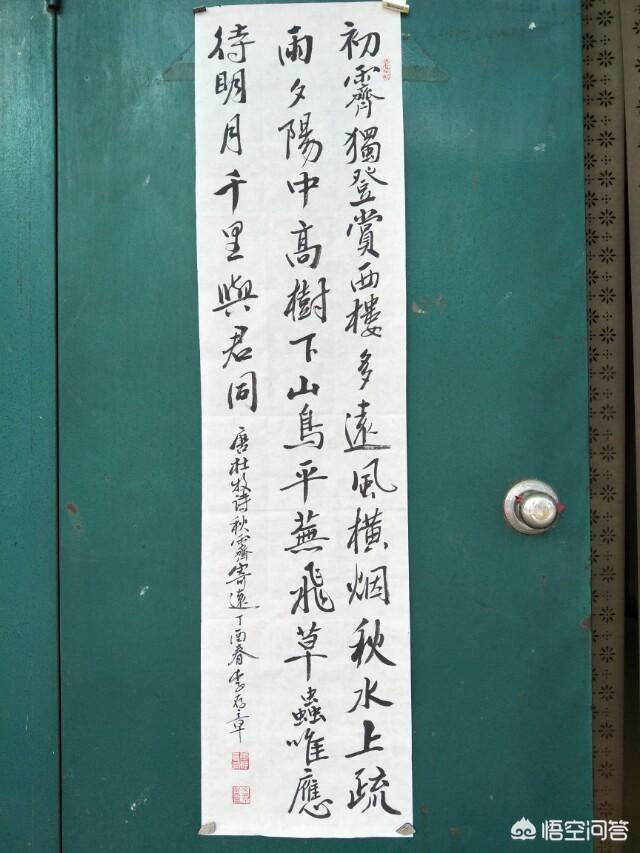 初霽獨登賞西樓多遠風橫烟秋水上疏
雨夕陽中高樹下山鳥平蕪飛草蟲唯應
待明月千里與君同
唐杜牧诗秋霽寄遠丁酉春李存章
悟空问答